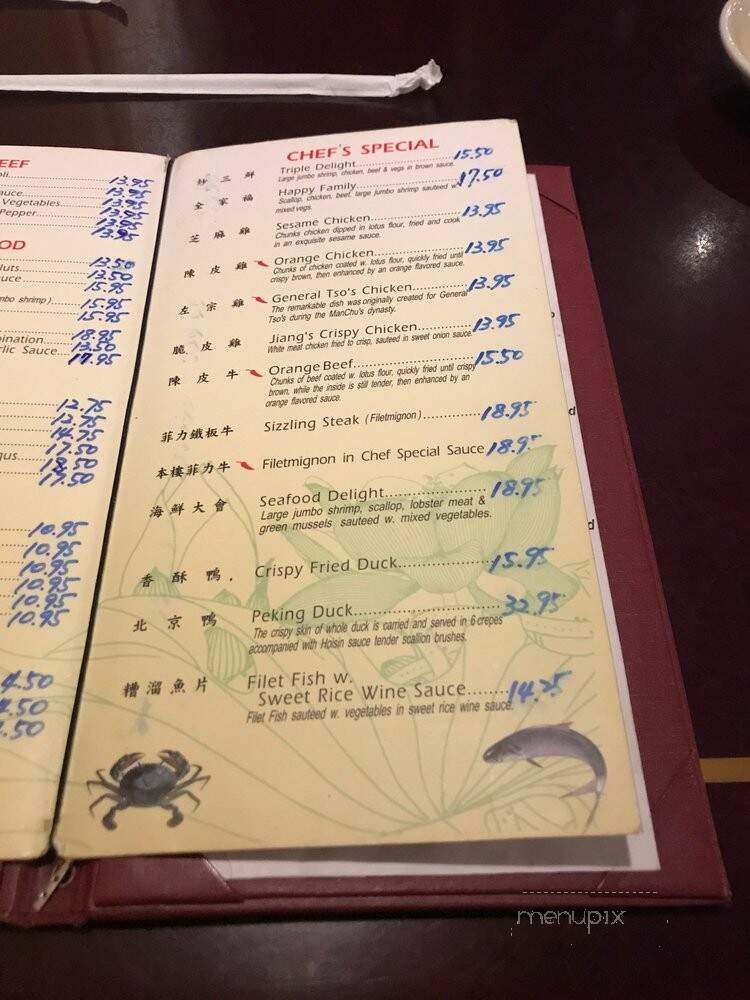 EEF
oli
13.95
auce
13.95
Vegetables
13.95
Pepper
13.95
13.95
OD
Nuts
13.50
uce
13.50
15.95
mbo shrimp)
15.95
15.95
bination
18.95
13.50
rlic Sauce
17.95
12.75
12.75
14.75
17.50
gus
18.50
17.50
10.95
10.95
10.95
10.95
10.95
10.95
4.50
4.50
4.50
CHEF'S SPECIAL
炒三鮮 Triple Delight 15.50
Large jumbo shrimp, chicken, beef & vegs in brown sauce.
全家福 Happy Family 17.50
Scallop, chicken, beef, large jumbo shrimp sauteed w.
mixed vegs.
芝麻雞 Sesame Chicken 13.95
Chunks chicken dipped in lotus flour, fried and cook
in an exquisite sesame sauce.
陳皮雞 Orange Chicken 13.95
Chunks of chicken coated w. lotus flour, quickly fried until
crispy brown, then enhanced by an orange flavored sauce.
左宗雞 General Tso's Chicken 13.95
The remarkable dish was originally created for General
Tso's during the ManChu's dynasty.
脆皮雞 Jiang's Crispy Chicken 13.95
White meat chicken fried to crisp, sauteed in sweet onion sauce.
陳皮牛 Orange Beef 15.50
Chunks of beef coated w. lotus flour, quickly fried until crispy
brown, while the inside is still tender, then enhanced by an
orange flavored sauce.
菲力鐵板牛 Sizzling Steak (Filetmignon) 18.95
本樓菲力牛 Filetmignon in Chef Special Sauce 18.95
海鮮大會 Seafood Delight 18.95
Large jumbo shrimp, scallop, lobster meat &
green mussels sauteed w. mixed vegetables.
香酥鴨. Crispy Fried Duck 15.95
北京鴨 Peking Duck 32.95
The crispy skin of whole duck is carried and served in 6 crepes
accompanied with Hoisin sauce tender scallion brushes.
糟溜魚片 Filet Fish w.
Sweet Rice Wine Sauce 14.25
Filet Fish sauteed w. vegetables in sweet rice wine sauce.
d
d
menupix